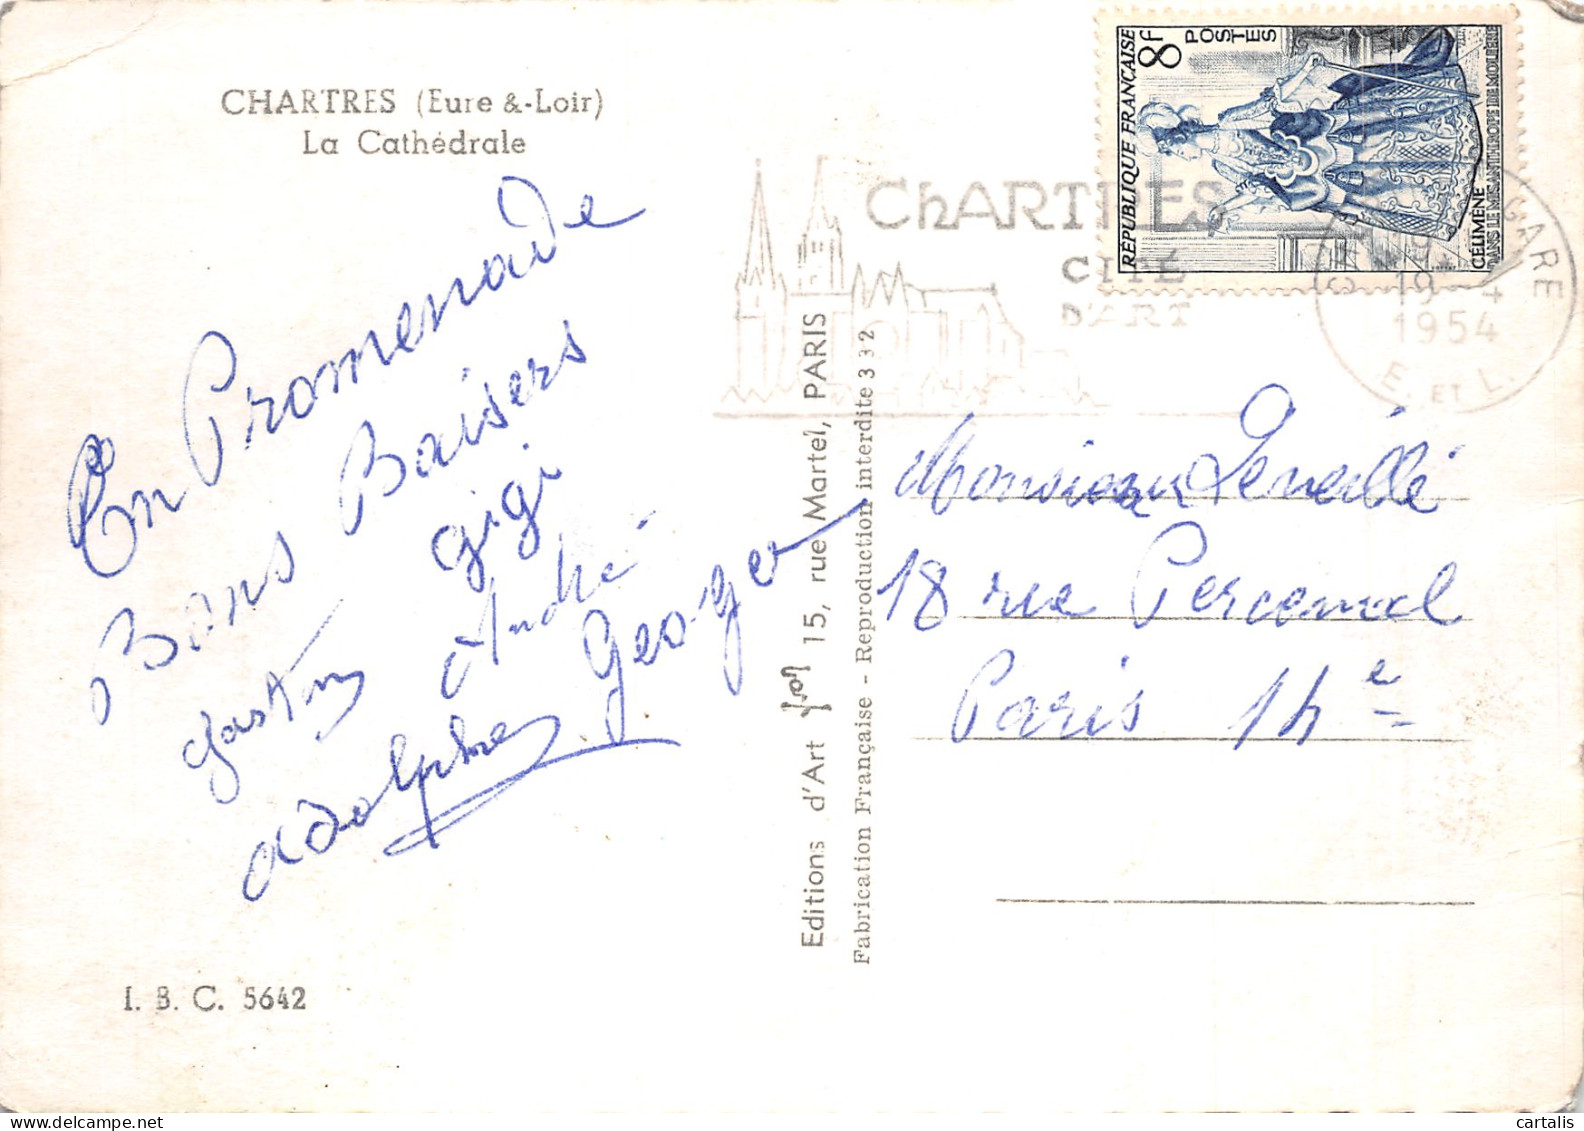 CHARTRES (Eure &-Loir)
La Cathédrale
En Promenade
Bons Baisers
gigi
gaston André
adolphe Georges
I. B. C. 5642
Editions d'Art Yvon 15, rue Martel, PARIS
Fabrication Française - Reproduction interdite 332
RÉPUBLIQUE FRANÇAISE
8F
POSTES
CÉLIMÈNE
DANS LE MISANTHROPE DE MOLIÈRE
ChARTRES
CITÉ
D'ART
GARE
19 - 4
1954
E. ET L.
Monsieur
18 rue
Paris 14e
cartalis
delcampe.net